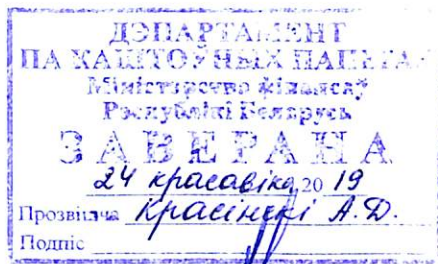 ДЭПАРТАМЕНТ
ПА КАШТОЎНЫХ ПАПЕРАХ
Міністэрства фінансаў
Рэспублікі Беларусь
ЗАВЕРАНА
24 красавіка 20 19
Прозвішча Красінскі А.Д.
Подпіс